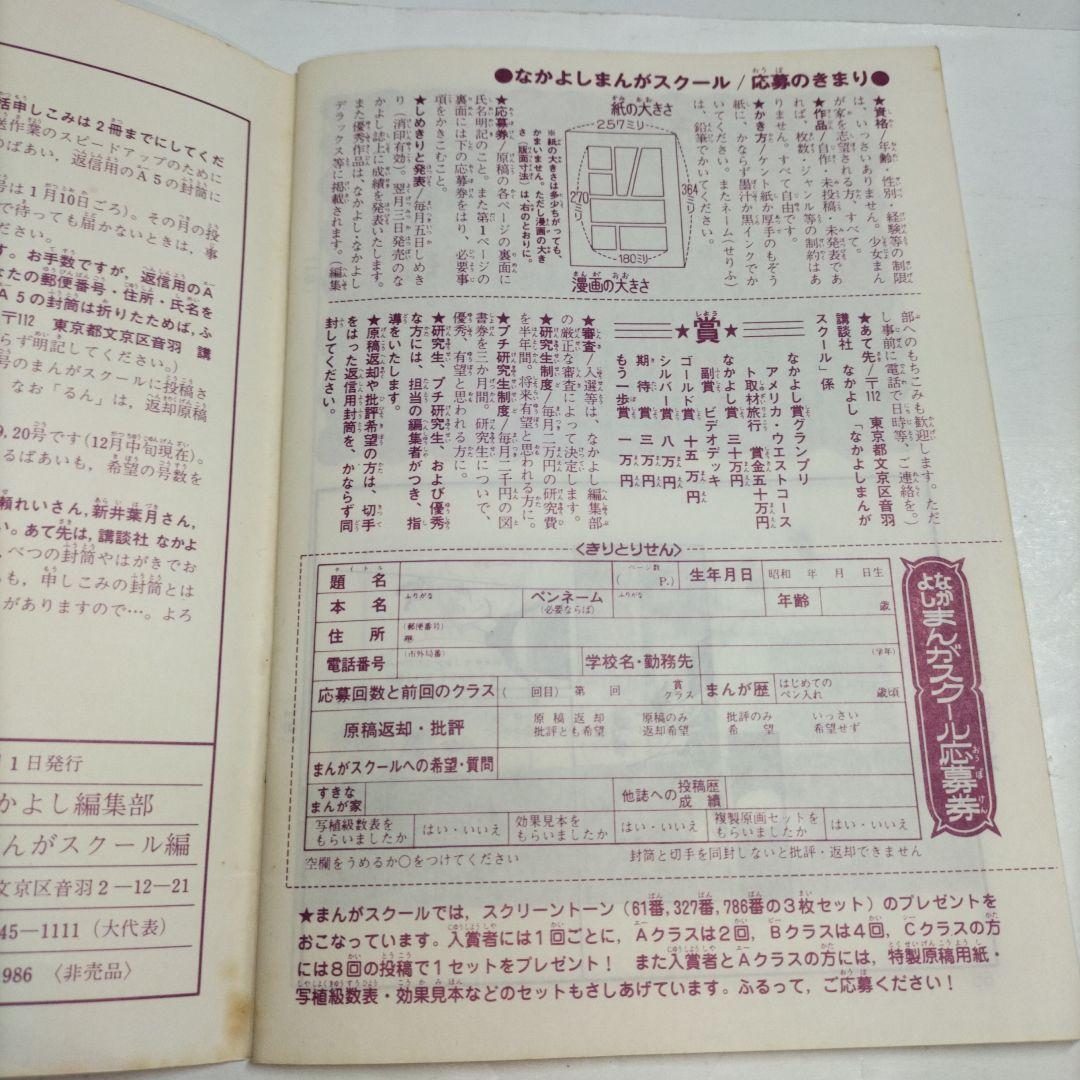 括申しこみは2冊までにしてくだ
送作業のスピードアップのために
のばあい，返信用のA5の封筒に
号は1月10日ごろ)。その月の投
で待っても届かないときは，事
ださい。
す。お手数ですが，返信用のA
なたの郵便番号・住所・氏名を
A5の封筒は折りたためば，ふ
〒112 東京都文京区音羽 講
らず明記してください。)
号のまんがスクールに投稿さ
なお「るん」は，返却原稿
9.20号です(12月中旬現在)。
るばあいも，希望の号数を
瀬れいさん，新井葉月さん，
い。あて先は，講談社 なかよ
，べつの封筒やはがきでお
も，申しこみの封筒とは
がありますので…。よろ
1日発行
かよし編集部
んがスクール編
文京区音羽2—12—21
45—1111(大代表)
1986 〈非売品〉
●なかよしまんがスクール/応募のきまり●
★資格/年齢・性別・経験等の制限
は、いっさいありません。少女まん
が家を志望される方、すべて。
★作品/自作・未投稿・未発表であ
れば、枚数・ジャンル等の制約はあ
りません。すべて自由です。
★かき方/ケント紙か厚手のもぞう
紙に、かならず墨汁か黒インクでか
いてください。またネーム(せりふ)
は、鉛筆でかいてください。
紙の大きさ
257ミリ
364ミリ
270ミリ
180ミリ
漫画の大きさ
※紙の大きさは多少ちがっても、
かまいません。ただし漫画の大き
さ(版面寸法)は、右のとおりに。
★応募券/原稿の各ページの裏面に
氏名明記のこと。また第1ページの
裏面には下の応募券をはり、必要事
項をかきこむこと。
★しめきりと発表/毎月五日しめき
り(消印有効)。翌月三日発売のな
かよし誌上に成績を発表いたします。
また優秀作品は、なかよし・なかよし
デラックス等に掲載されます。(編集
部へのもちこみも歓迎します。ただ
し事前に電話で日時等、ご連絡を。)
★あて先/〒112 東京都文京区音羽
講談社 なかよし「なかよしまんが
スクール」係
★賞★
なかよし賞グランプリ
アメリカ・ウエストコース
ト取材旅行 賞金五十万円
なかよし賞 三十万円
副賞 ビデオデッキ
ゴールド賞 十五万円
シルバー賞 八万円
期待賞 三万円
もう一歩賞 一万円
★審査/入選等は、なかよし編集部
の厳正な審査によって決定します。
★研究生制度/毎月二万円の研究費
を半年間。将来有望と思われる方に。
★プチ研究生制度/毎月二千円の図
書券を三か月間。研究生についで、
優秀、有望と思われる方に。
★研究生、プチ研究生、および優秀
な方には、担当の編集者がつき、指
導をいたします。
★原稿返却や批評希望の方は、切手
をはった返信用封筒を、かならず同
封してください。
〈きりとりせん〉
題名 タイトル (ページ数 P.) 生年月日 昭和 年 月 日生
本名 ふりがな ペンネーム(必要ならば) ふりがな 年齢 歳
住所 (郵便番号) 〒
電話番号 (市外局番) 学校名・勤務先 (学年)
応募回数と前回のクラス ( 回目) 第 回 賞 クラス まんが歴 はじめてのペン入れ 歳頃
原稿返却・批評 原稿返却批評とも希望 原稿のみ返却希望 批評のみ希望 いっさい希望せず
まんがスクールへの希望・質問
すきなまんが家 他誌への投稿歴成績
写植級数表をもらいましたか はい・いいえ 効果見本をもらいましたか はい・いいえ 複製原画セットをもらいましたか はい・いいえ
空欄をうめるか○をつけてください 封筒と切手を同封しないと批評・返却できません
なかよしまんがスクール応募券
★まんがスクールでは，スクリーントーン(61番,327番,786番の3枚セット)のプレゼントを
おこなっています。入賞者には1回ごとに，Aクラスは2回，Bクラスは4回，Cクラスの方
には8回の投稿で1セットをプレゼント! また入賞者とAクラスの方には，特製原稿用紙・
写植級数表・効果見本などのセットもさしあげています。ふるって，ご応募ください!